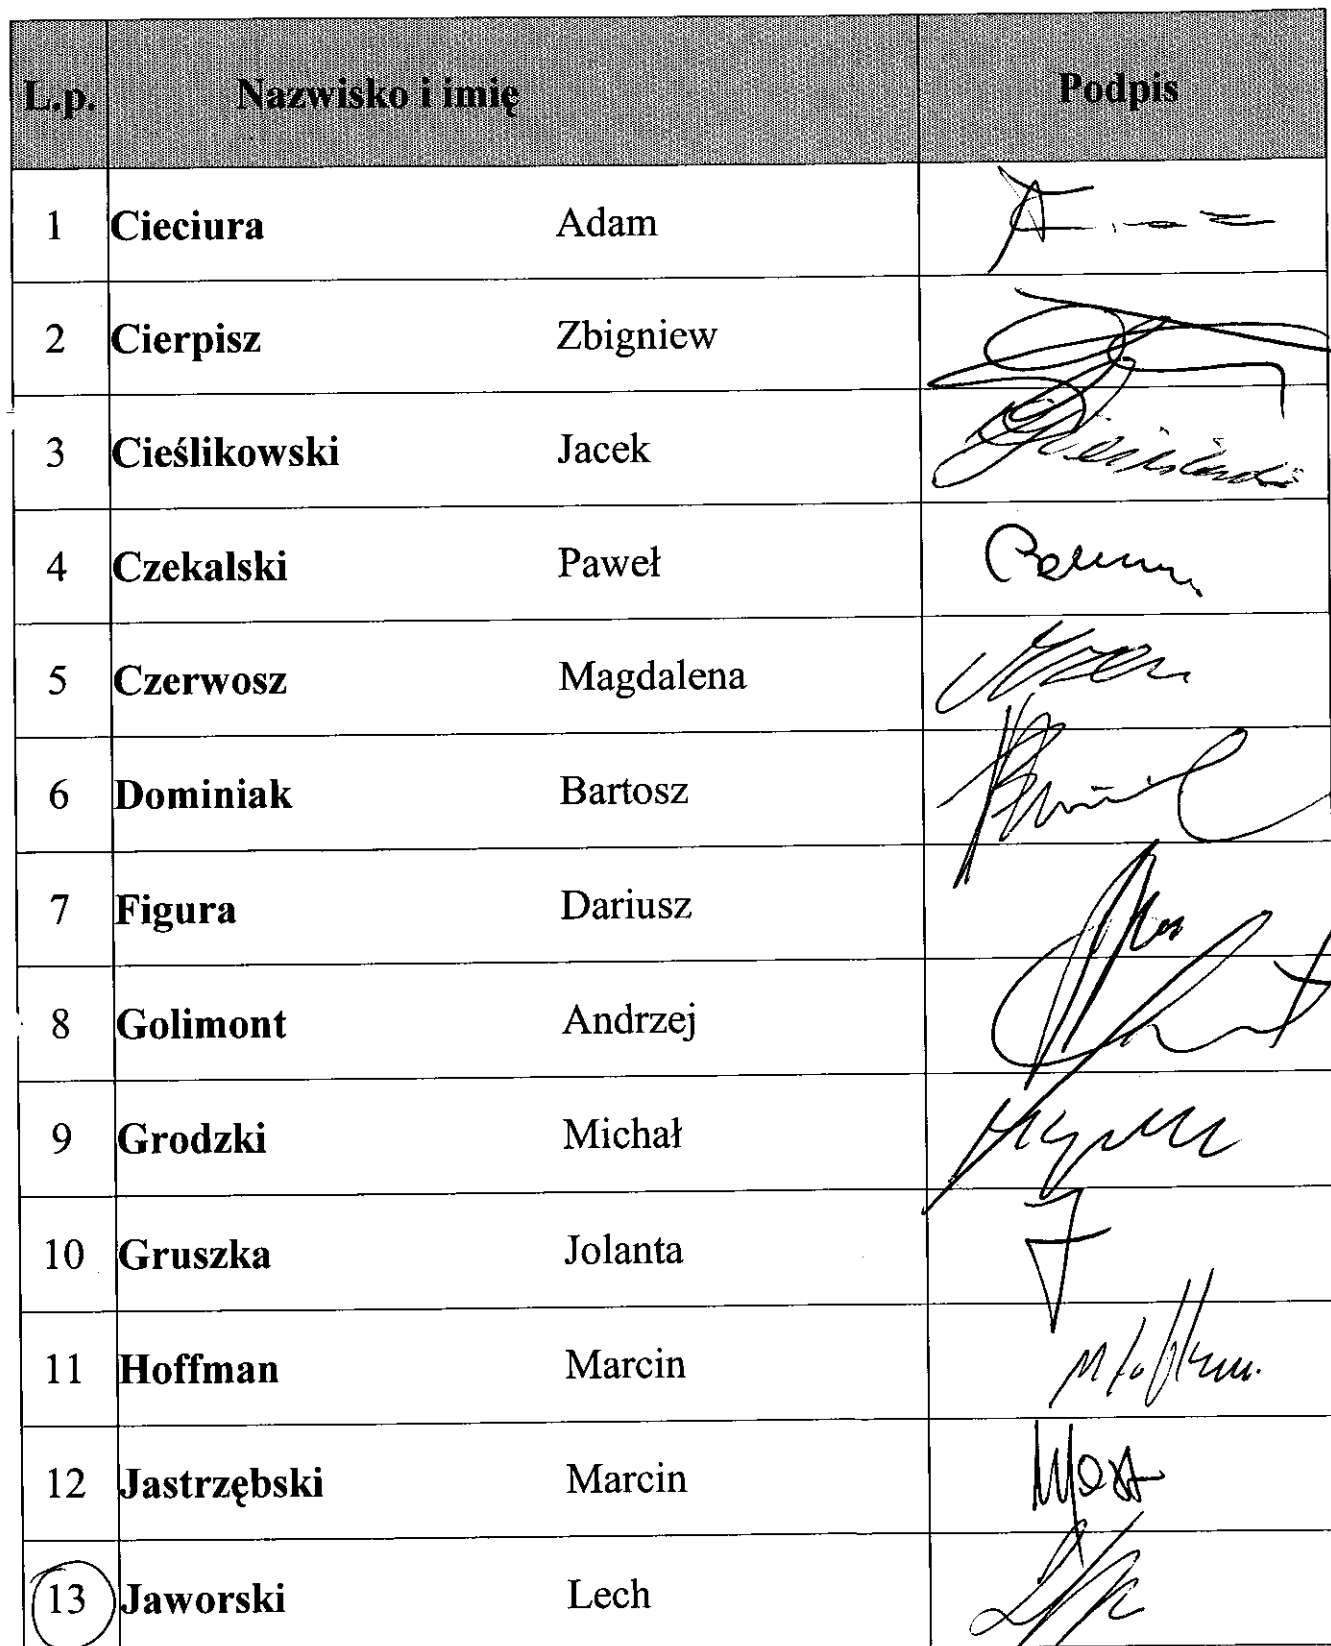 L.p. Nazwisko i imię Podpis
1 Cieciura Adam
2 Cierpisz Zbigniew
3 Cieślikowski Jacek
4 Czekalski Paweł
5 Czerwosz Magdalena
6 Dominiak Bartosz
7 Figura Dariusz
8 Golimont Andrzej
9 Grodzki Michał
10 Gruszka Jolanta
11 Hoffman Marcin
12 Jastrzębski Marcin
13 Jaworski Lech